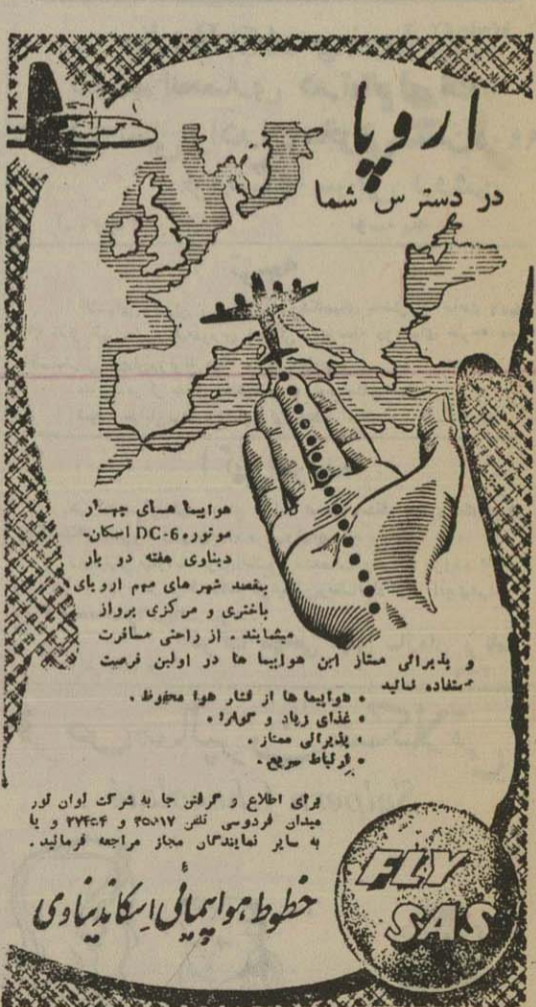 اروپا
در دسترس شما
هواپیما های چهار
موتوره DC-6 اسکان-
دیناوی هفته دو بار
بمقصد شهر های مهم اروپای
باختری و مرکزی پرواز
مینمایند . از راحتی مسافرت
و پذیرائی ممتاز این هواپیما ها در اولین فرصت
استفاده نمائید
• هواپیما ها از فشار هوا محفوظ .
• غذای زیاد و گوارا .
• پذیرائی ممتاز .
• ارتباط سریع .
برای اطلاع و گرفتن جا به شرکت لوان تور
میدان فردوسی تلفن ۳۵۰۱۷ و و یا
به سایر نمایندگان مجاز مراجعه فرمائید .
با
خطوط هواپیمائی اسکاندیناوی
FLY
SAS